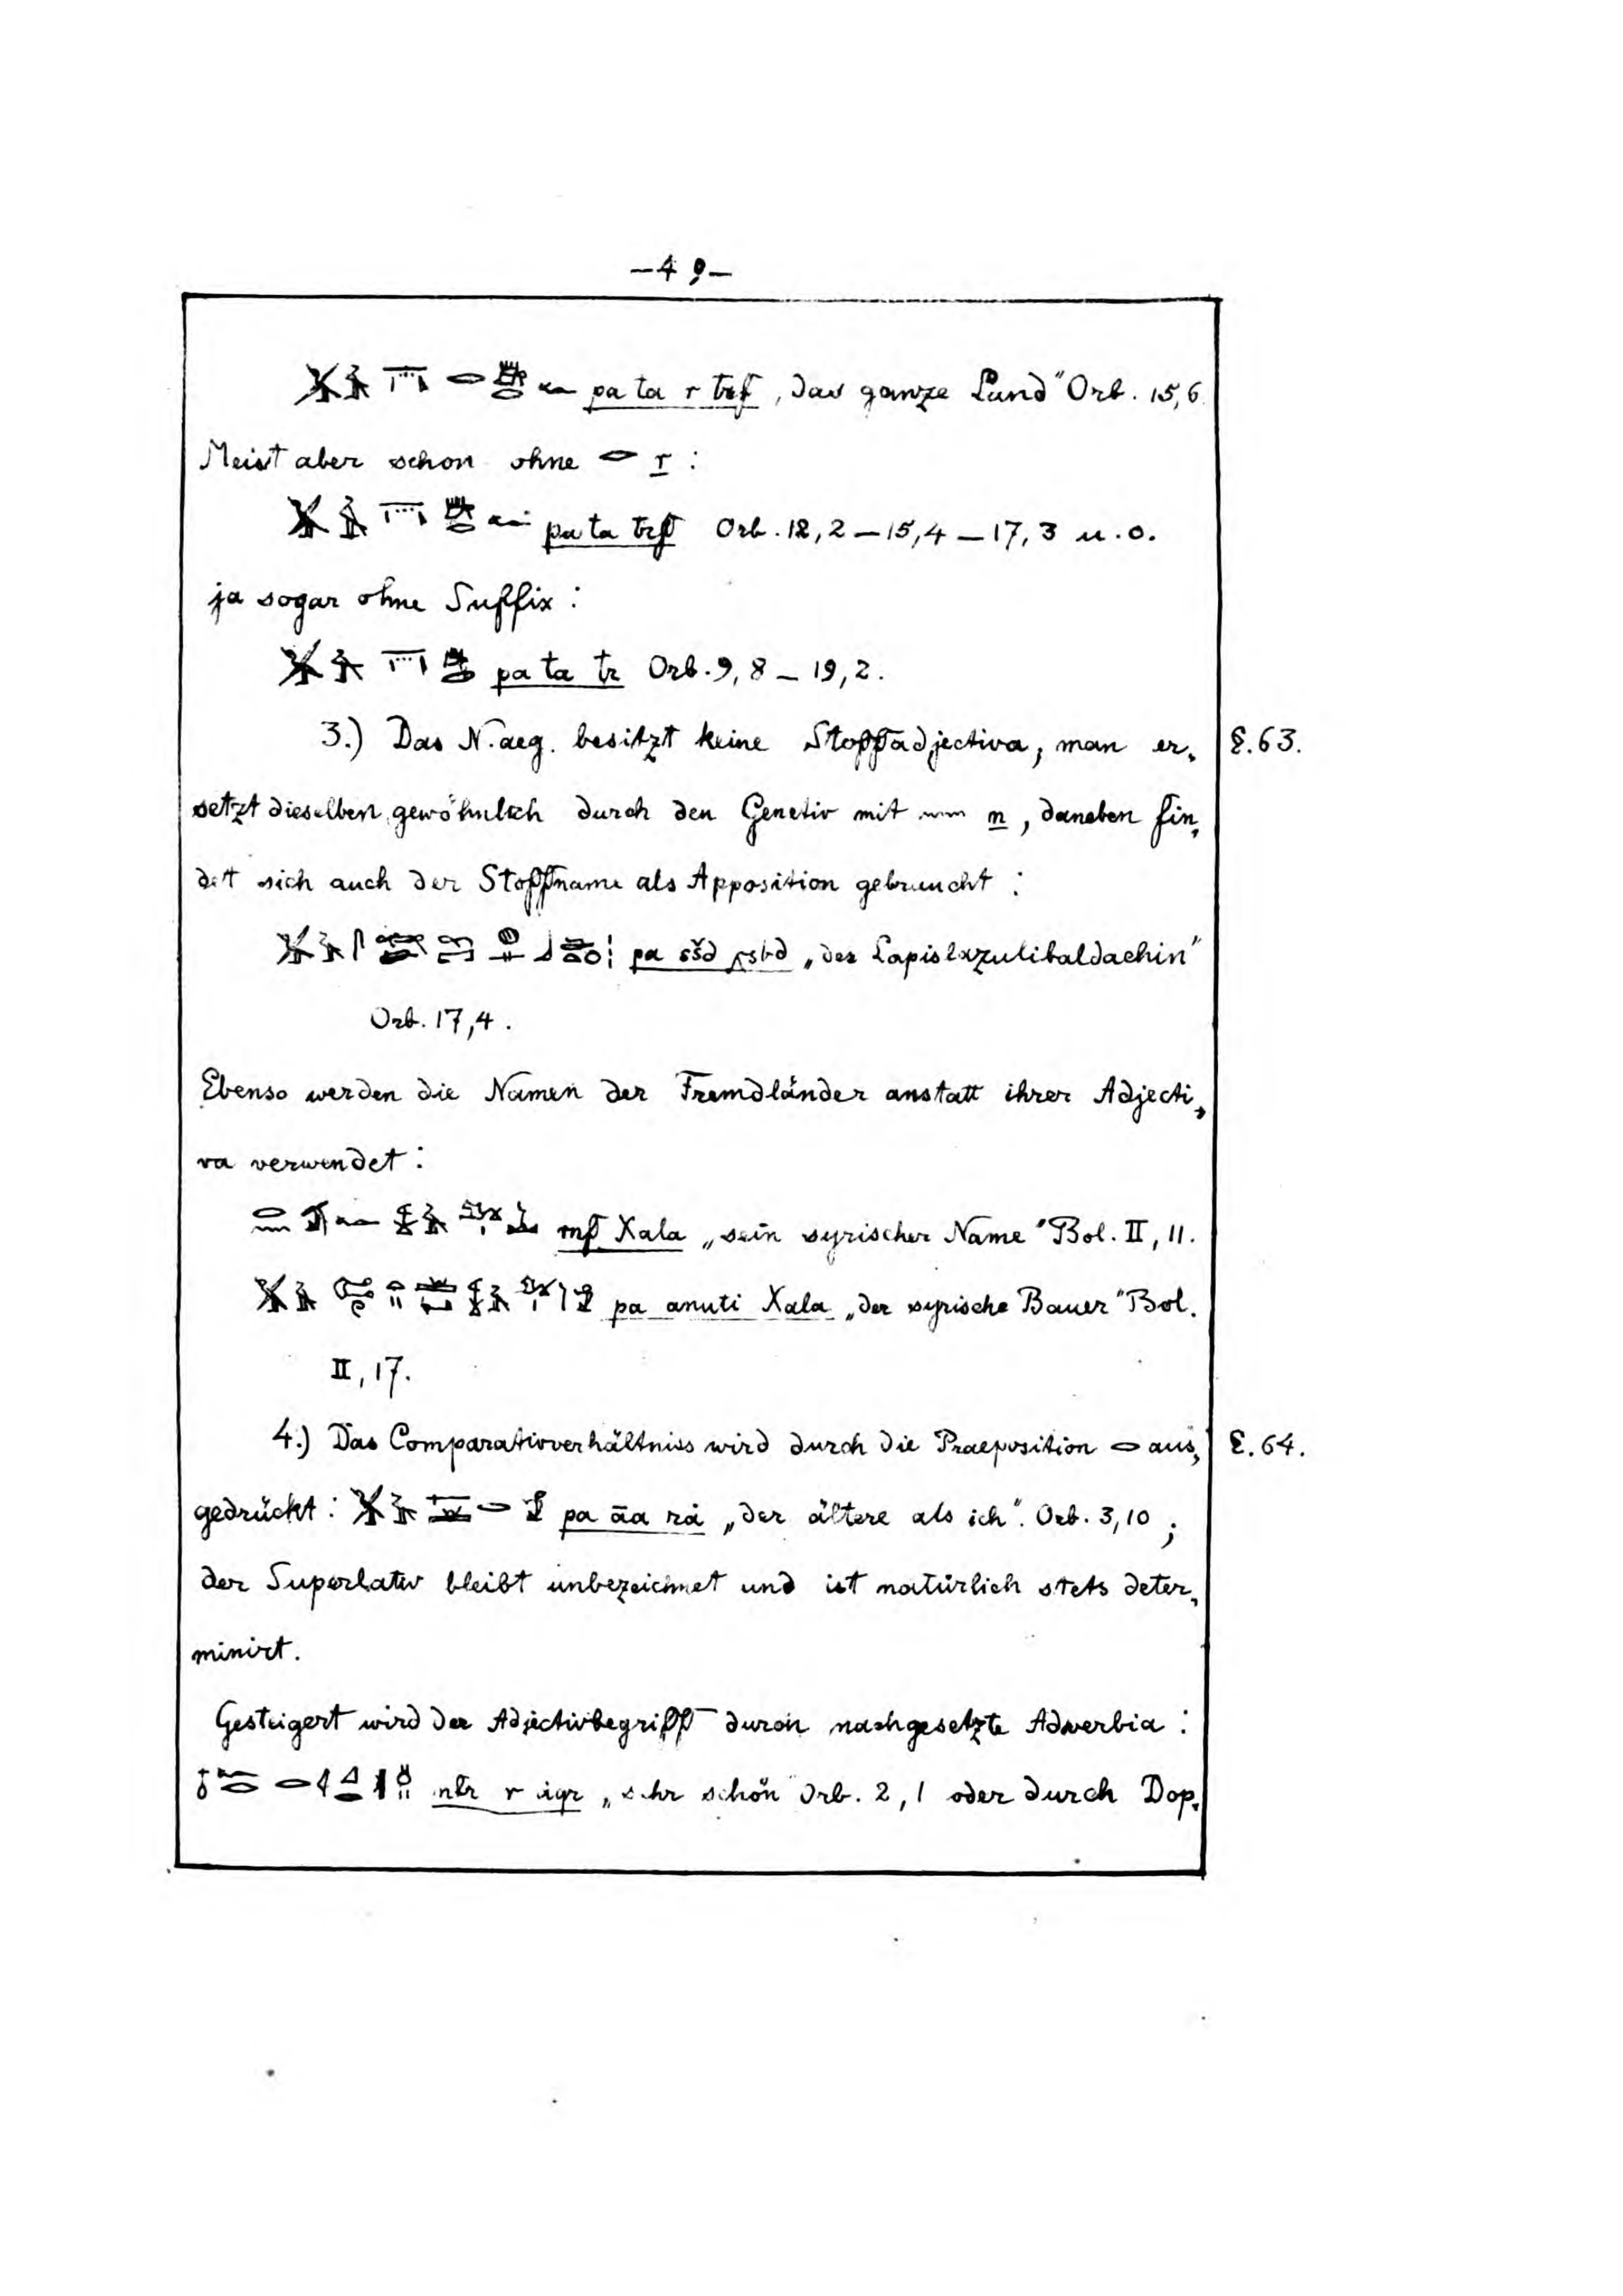 —49—
pa ta r trf „das ganze Land" Orb. 15,6
Meist aber schon ohne 𓂋 r :
pa ta trf Orb. 12,2 — 15,4 — 17,3 u. o.
ja sogar ohne Suffix :
pa ta tr Orb. 9,8 — 19,2.
3.) Das N. aeg. besitzt keine Stoffadjectiva, man er- §. 63.
setzt dieselben gewöhnlich durch den Genetiv mit 𓈖 n, daneben fin-
det sich auch der Stoffname als Apposition gebraucht :
pa sšd „der Lapislazulibaldachin"
Orb. 17,4.
Ebenso werden die Namen der Fremdländer anstatt ihrer Adjecti-
va verwendet :
rnf Xala „sein syrischer Name" Bol. II, 11.
pa anuti Xala „der syrische Bauer" Bol.
II, 17.
4.) Das Comparativverhältniss wird durch die Praeposition 𓂋 aus- §. 64.
gedrückt : pa āa rȧ „der ältere als ich". Orb. 3,10 ;
der Superlativ bleibt unbezeichnet und ist natürlich stets deter-
minirt.
Gesteigert wird der Adjectivbegriff durch nachgesetzte Adverbia :
nfr r iqr „sehr schön" Orb. 2,1 oder durch Dop-